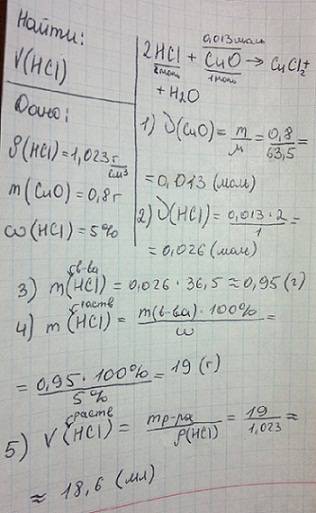 Найти:
V(HCl)
Дано:
ρ(HCl)=1,023 г/см³
m(CuO)=0,8г
ω(HCl)=5%
0,013 моль
2HCl + CuO → CuCl₂+
2 моль 1 моль
+ H₂O
1) ν(CuO) = m/M = 0,8/63,5 =
= 0,013 (моль)
2) ν(HCl) = 0,013 · 2/1 =
= 0,026 (моль)
3) m в-ва (HCl) = 0,026 · 36,5 ≈ 0,95 (г)
4) m раств (HCl) = m(в-ва) · 100%/ω =
= 0,95 · 100%/5% = 19 (г)
5) V раств (HCl) = mр-ра/ρ(HCl) = 19/1,023 ≈
≈ 18,6 (мл)